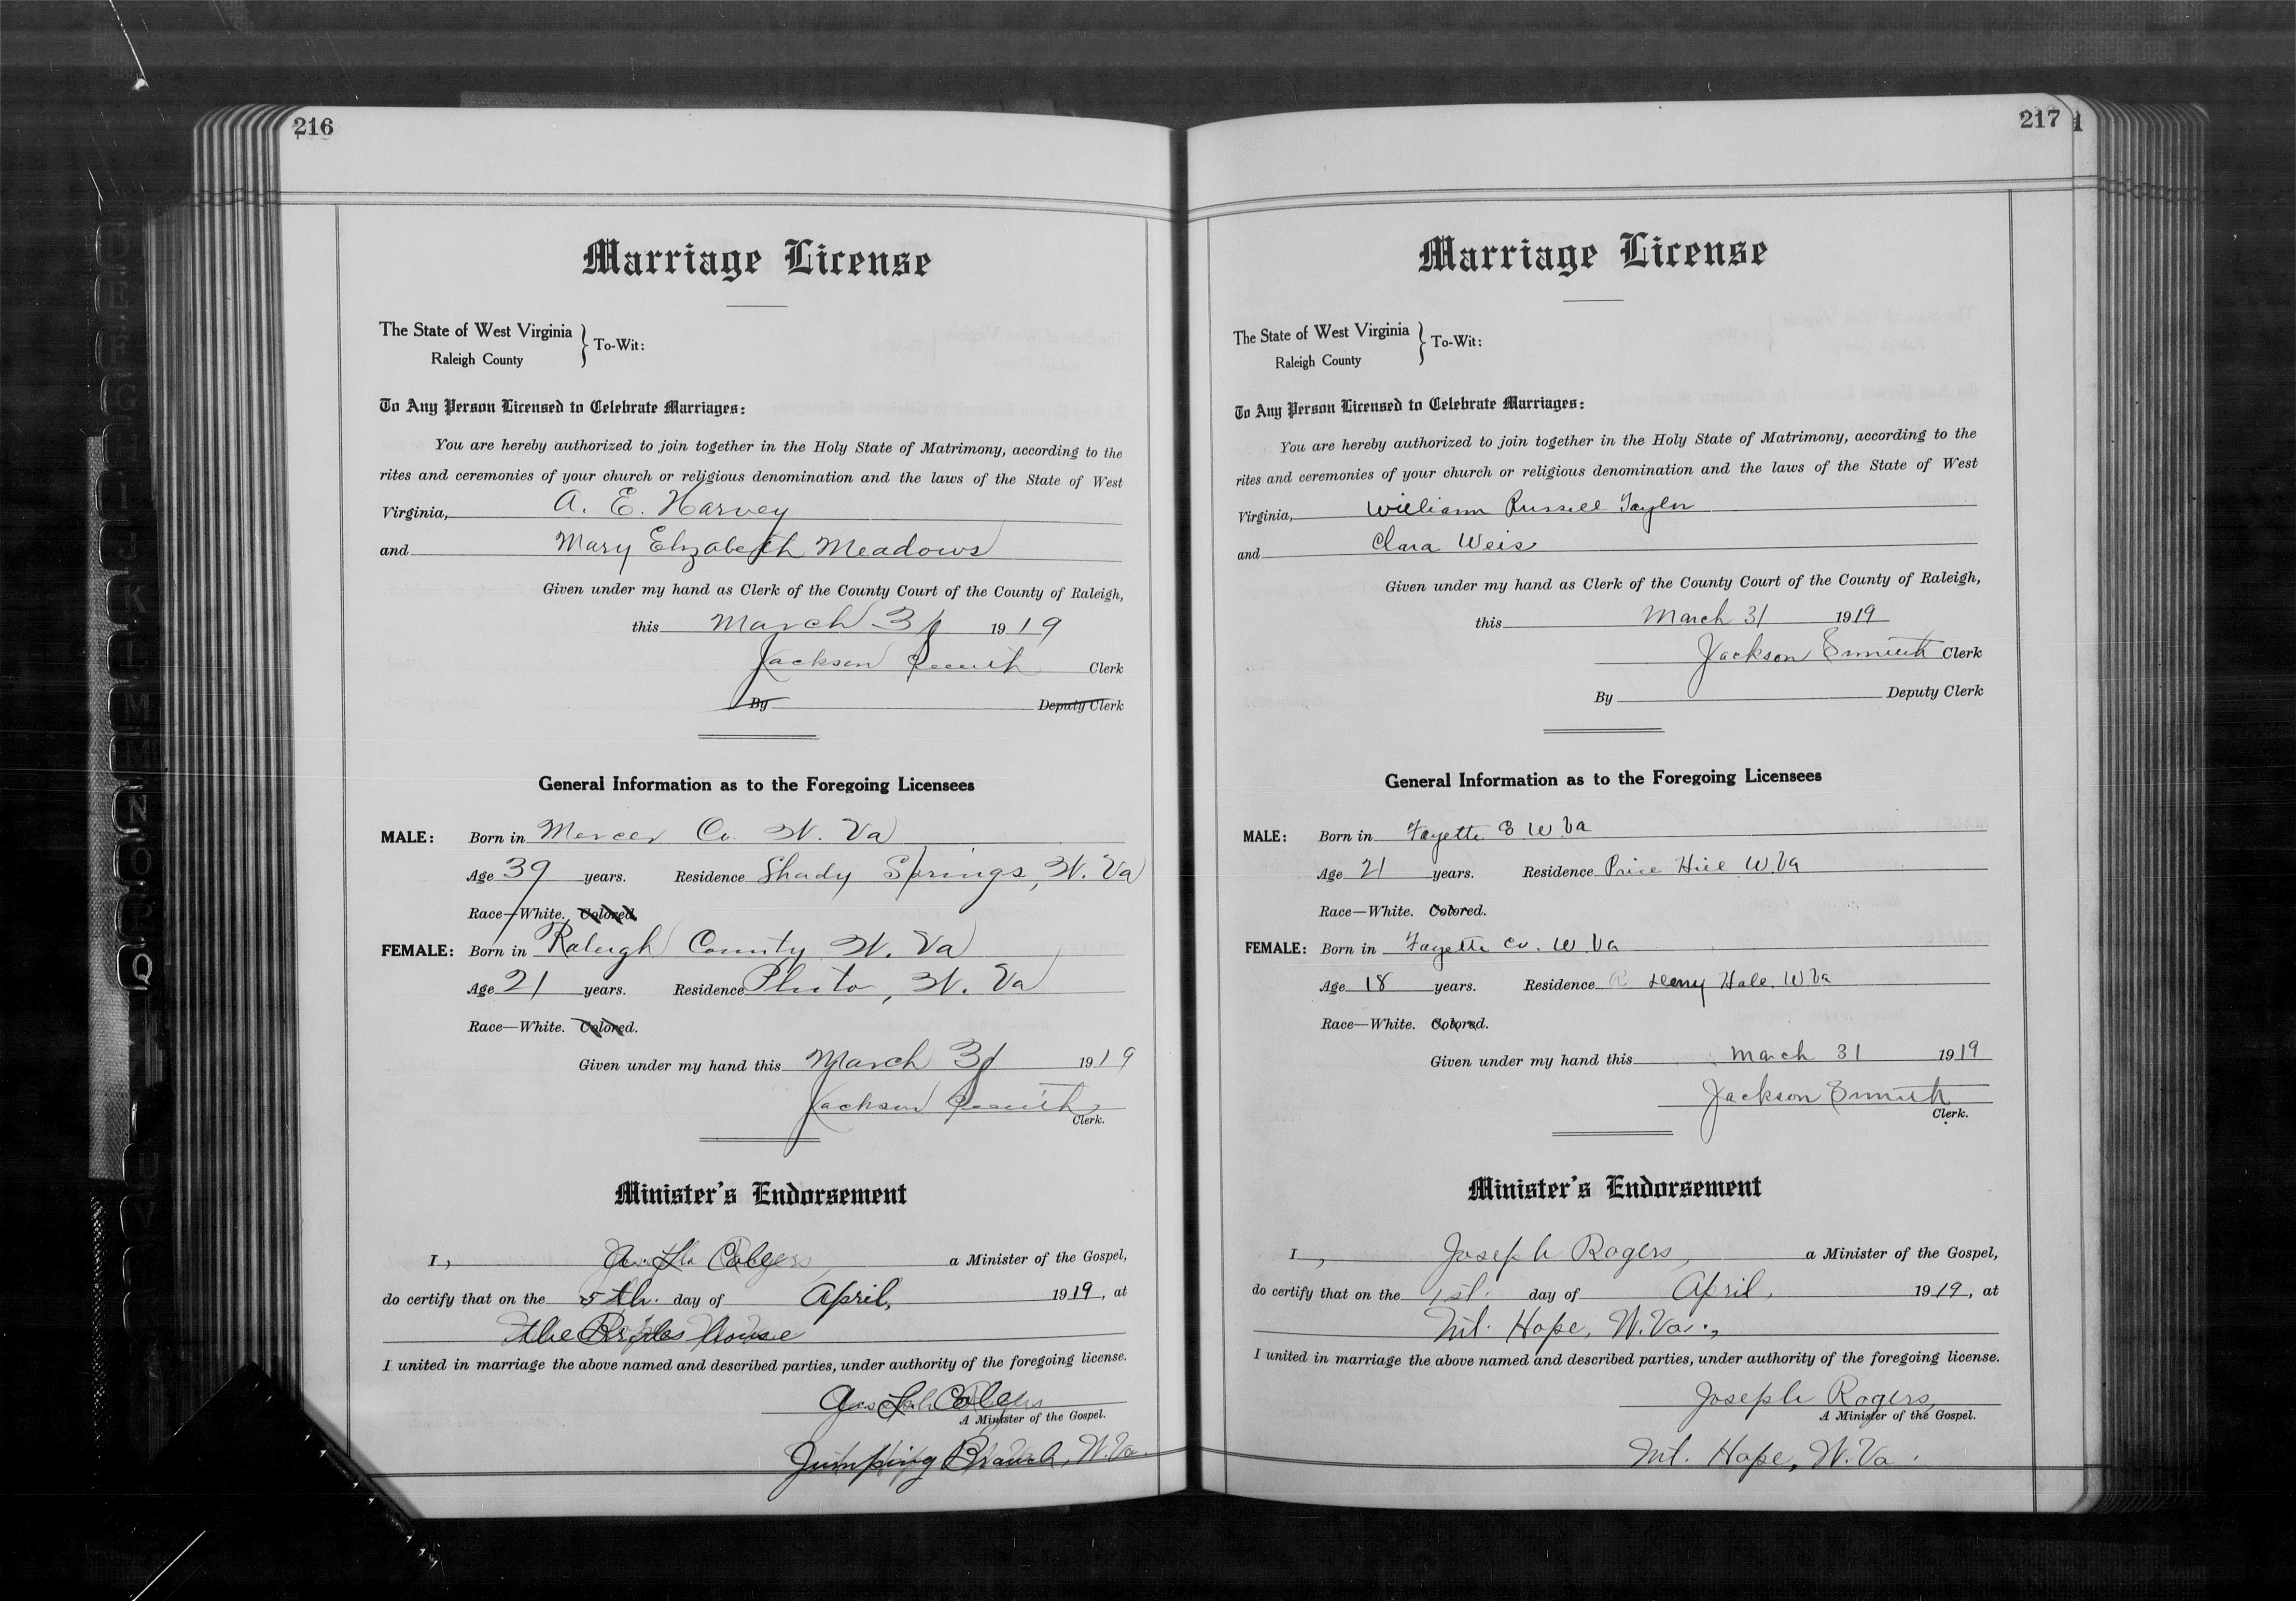 216
Marriage License
The State of West Virginia
Raleigh County
To-Wit:
To Any Person Licensed to Celebrate Marriages:
You are hereby authorized to join together in the Holy State of Matrimony, according to the
rites and ceremonies of your church or religious denomination and the laws of the State of West
Virginia, A. E. Harvey
and Mary Elizabeth Meadows
Given under my hand as Clerk of the County Court of the County of Raleigh,
this March 31 1919
Jackson Smith Clerk
By Deputy Clerk
General Information as to the Foregoing Licensees
MALE: Born in Mercer Co. W. Va
Age 39 years. Residence Shady Springs, W. Va
Race—White. Colored.
FEMALE: Born in Raleigh County W. Va
Age 21 years. Residence Pluto, W. Va
Race—White. Colored.
Given under my hand this March 31 1919
Jackson Smith
Clerk.
Minister's Endorsement
I, a Minister of the Gospel,
do certify that on the 5th. day of April, 1919, at
the house
I united in marriage the above named and described parties, under authority of the foregoing license.
A Minister of the Gospel.
Jumping Branch, W. Va.
217
1
Marriage License
The State of West Virginia
Raleigh County
To-Wit:
To Any Person Licensed to Celebrate Marriages:
You are hereby authorized to join together in the Holy State of Matrimony, according to the
rites and ceremonies of your church or religious denomination and the laws of the State of West
Virginia, William Russell Taylor
and Clara Weis
Given under my hand as Clerk of the County Court of the County of Raleigh,
this March 31 1919
Jackson Smith Clerk
By Deputy Clerk
General Information as to the Foregoing Licensees
MALE: Born in Fayette Co W. Va
Age 21 years. Residence Price Hill W. Va
Race—White. Colored.
FEMALE: Born in Fayette Co. W. Va
Age 18 years. Residence W Va
Race—White. Colored.
Given under my hand this March 31 1919
Jackson Smith
Clerk.
Minister's Endorsement
I, Joseph Rogers, a Minister of the Gospel,
do certify that on the 1st. day of April, 1919, at
Mt. Hope, W. Va.,
I united in marriage the above named and described parties, under authority of the foregoing license.
Joseph Rogers
A Minister of the Gospel.
Mt. Hope, W. Va.
D
E
F
G
H
I
J
K
L
M
M
N
O
P
Q
U
V